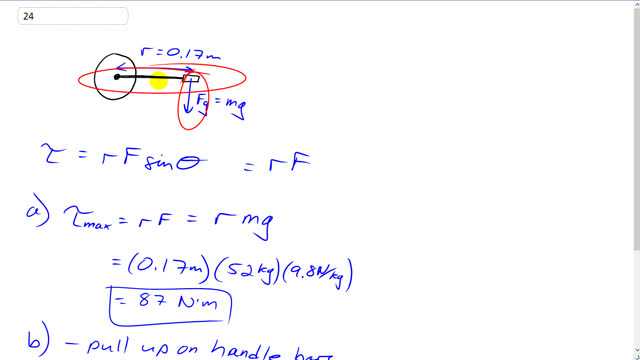 24
r = 0.17m
Fg = mg
τ = r F sinθ = r F
a) τmax = r F = r mg
= (0.17m)(52kg)(9.8N/kg)
= 87 N·m
b) - pull up on handle bars